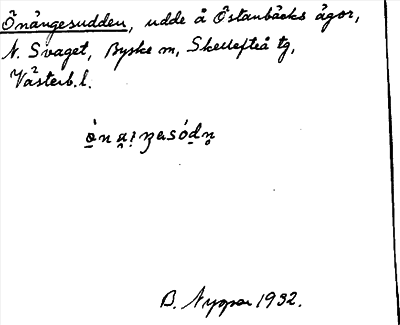 Önångesudden, udde å Östanbäcks ägor,
N. Svaget, Byske sn, Skellefteå tg,
Västerb. l.
B. Nygren 1932.